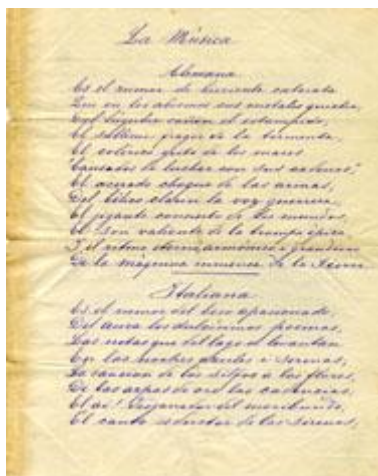 La Música
Alemana
Es el rumor de hirviente catarata
Que en los abismos sus cristales quiebra,
Del lúgubre cañón el estampido,
El sublime fragor de la tormenta,
El colérico grito de los mares
"Cansados de luchar con sus cadenas,"
El acerado choque de las armas,
Del bélico clarín la voz guerrera,
El gigante concierto de los mundos,
El son valiente de la trompa épica
I el ritmo eterno, armónico i grandioso
De la máquina inmensa de la tierra.
Italiana
Es el rumor del beso apasionado,
Del aura los dulcísimos poemas,
Las notas que del lago se levantan
En las noches azules i serenas,
La canción de los silfos a las flores,
De las arpas de oro las cadencias,
El ai! desgarrador del moribundo,
El canto seductor de las sirenas,